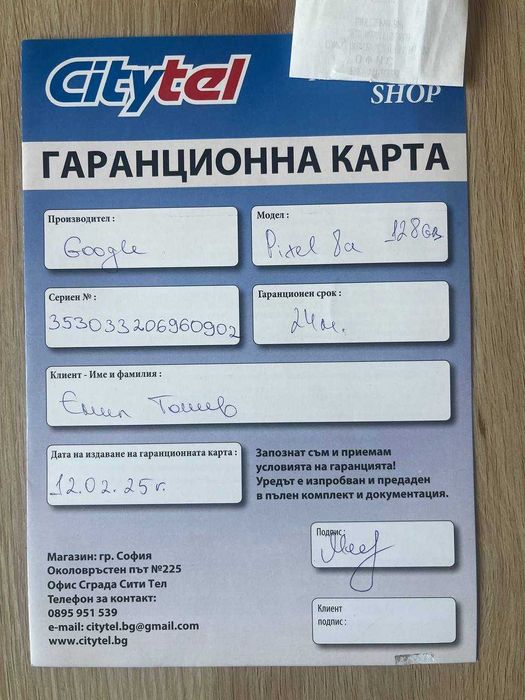 Citytel
SHOP
ГАРАНЦИОННА КАРТА
Производител :
Google
Модел :
Pixel 8a 128GB
Сериен № :
353033206960902
Гаранционен срок :
24м.
Клиент - Име и фамилия :
Емил Тошев
Дата на издаване на гаранционната карта :
12.02.25г.
Запознат съм и приемам
условията на гаранцията!
Уредът е изпробван и предаден
в пълен комплект и документация.
Подпис :
Магазин: гр. София
Околовръстен път №225
Офис Сграда Сити Тел
Телефон за контакт:
0895 951 539
e-mail: citytel.bg@gmail.com
www.citytel.bg
Клиент
подпис :